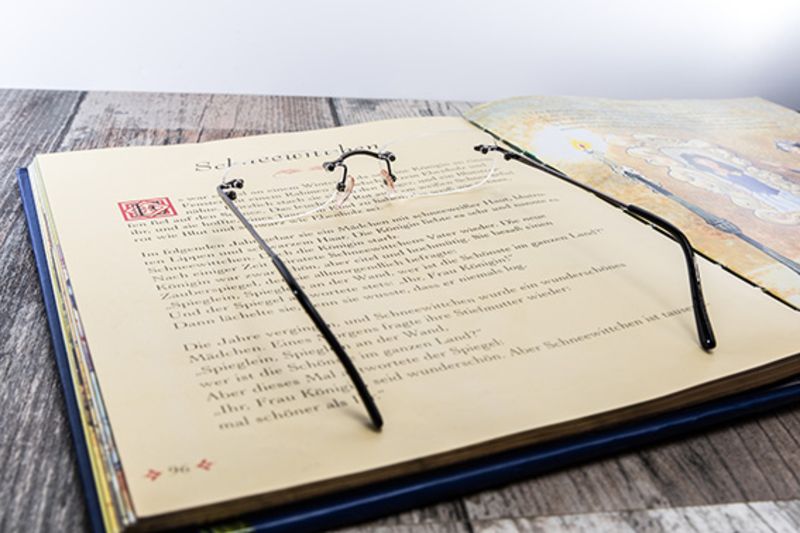 Schneewittchen
war an einem Königin
nähte an einem
fen fiel auf den Schnee.
Ihr, und sie
rot wie Blut und
Im folgenden ein Mädchen mit schneeweißer Haut,
ten Lippen und schwarzem Haar, Königin liebte es sehr und nannte es
Schneewittchen. Königin starb.
Nach einiger Zeit Schneewittchens Vater wieder. Die neue
Königin war aber eitel und hochmütig. Sie besaß einen
Zauberspiegel, den sie allmorgendlich befragte:
„Spieglein, Spieglein an der Wand, wer ist die Schönste im ganzen Land?“
Und der Spiegel stets: „Ihr, Frau Königin!“
Dann lächelte sie, denn sie wusste, dass er niemals log.
Die Jahre vergingen und Schneewittchen wurde ein wunderschönes
Mädchen. Eines Morgens fragte ihre Stiefmutter wieder:
„Spieglein, Spieglein an der Wand,
wer ist die Schönste im ganzen Land?“
Aber dieses Mal antwortete der Spiegel:
„Ihr, Frau Königin, seid wunderschön. Aber Schneewittchen ist
mal schöner als
96